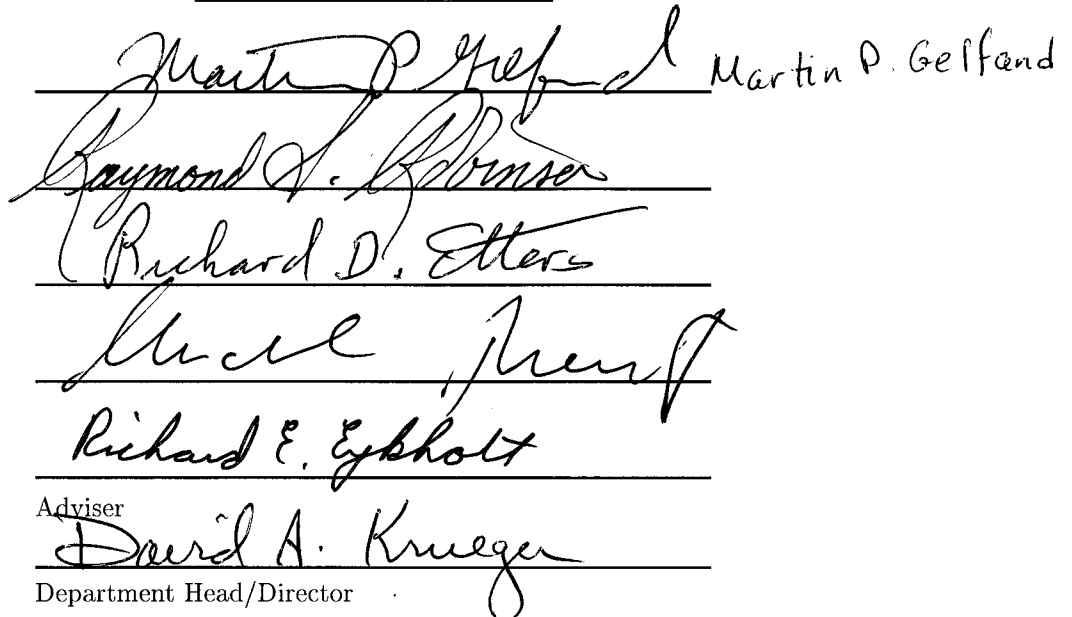 Martin P Gelfand Martin P. Gelfand
Raymond S. Robinson
Richard D. Etters
Richard E. Eykholt
Adviser
David A. Krueger
Department Head/Director